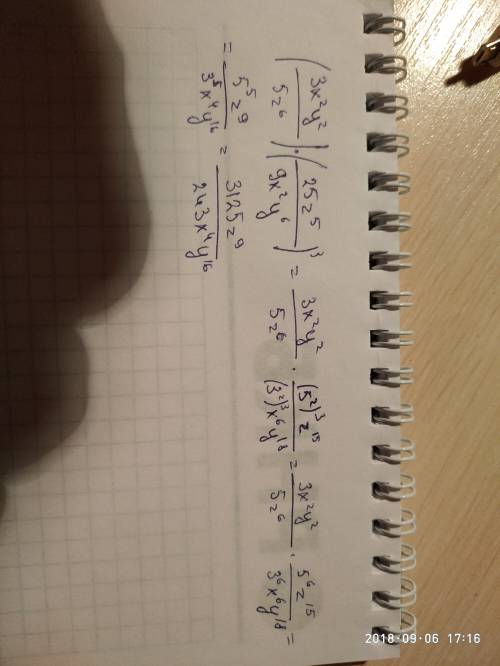 (3x²y²/5z⁶)·(25z⁵/9x²y⁶)³ = 3x²y²/5z⁶ · (5²)³z¹⁵/(3²)³x⁶y¹⁸ = 3x²y²/5z⁶ · 5⁶z¹⁵/3⁶x⁶y¹⁸ =
= 5⁵z⁹/3⁵x⁴y¹⁶ = 3125z⁹/243x⁴y¹⁶
2018-09-06 17:16